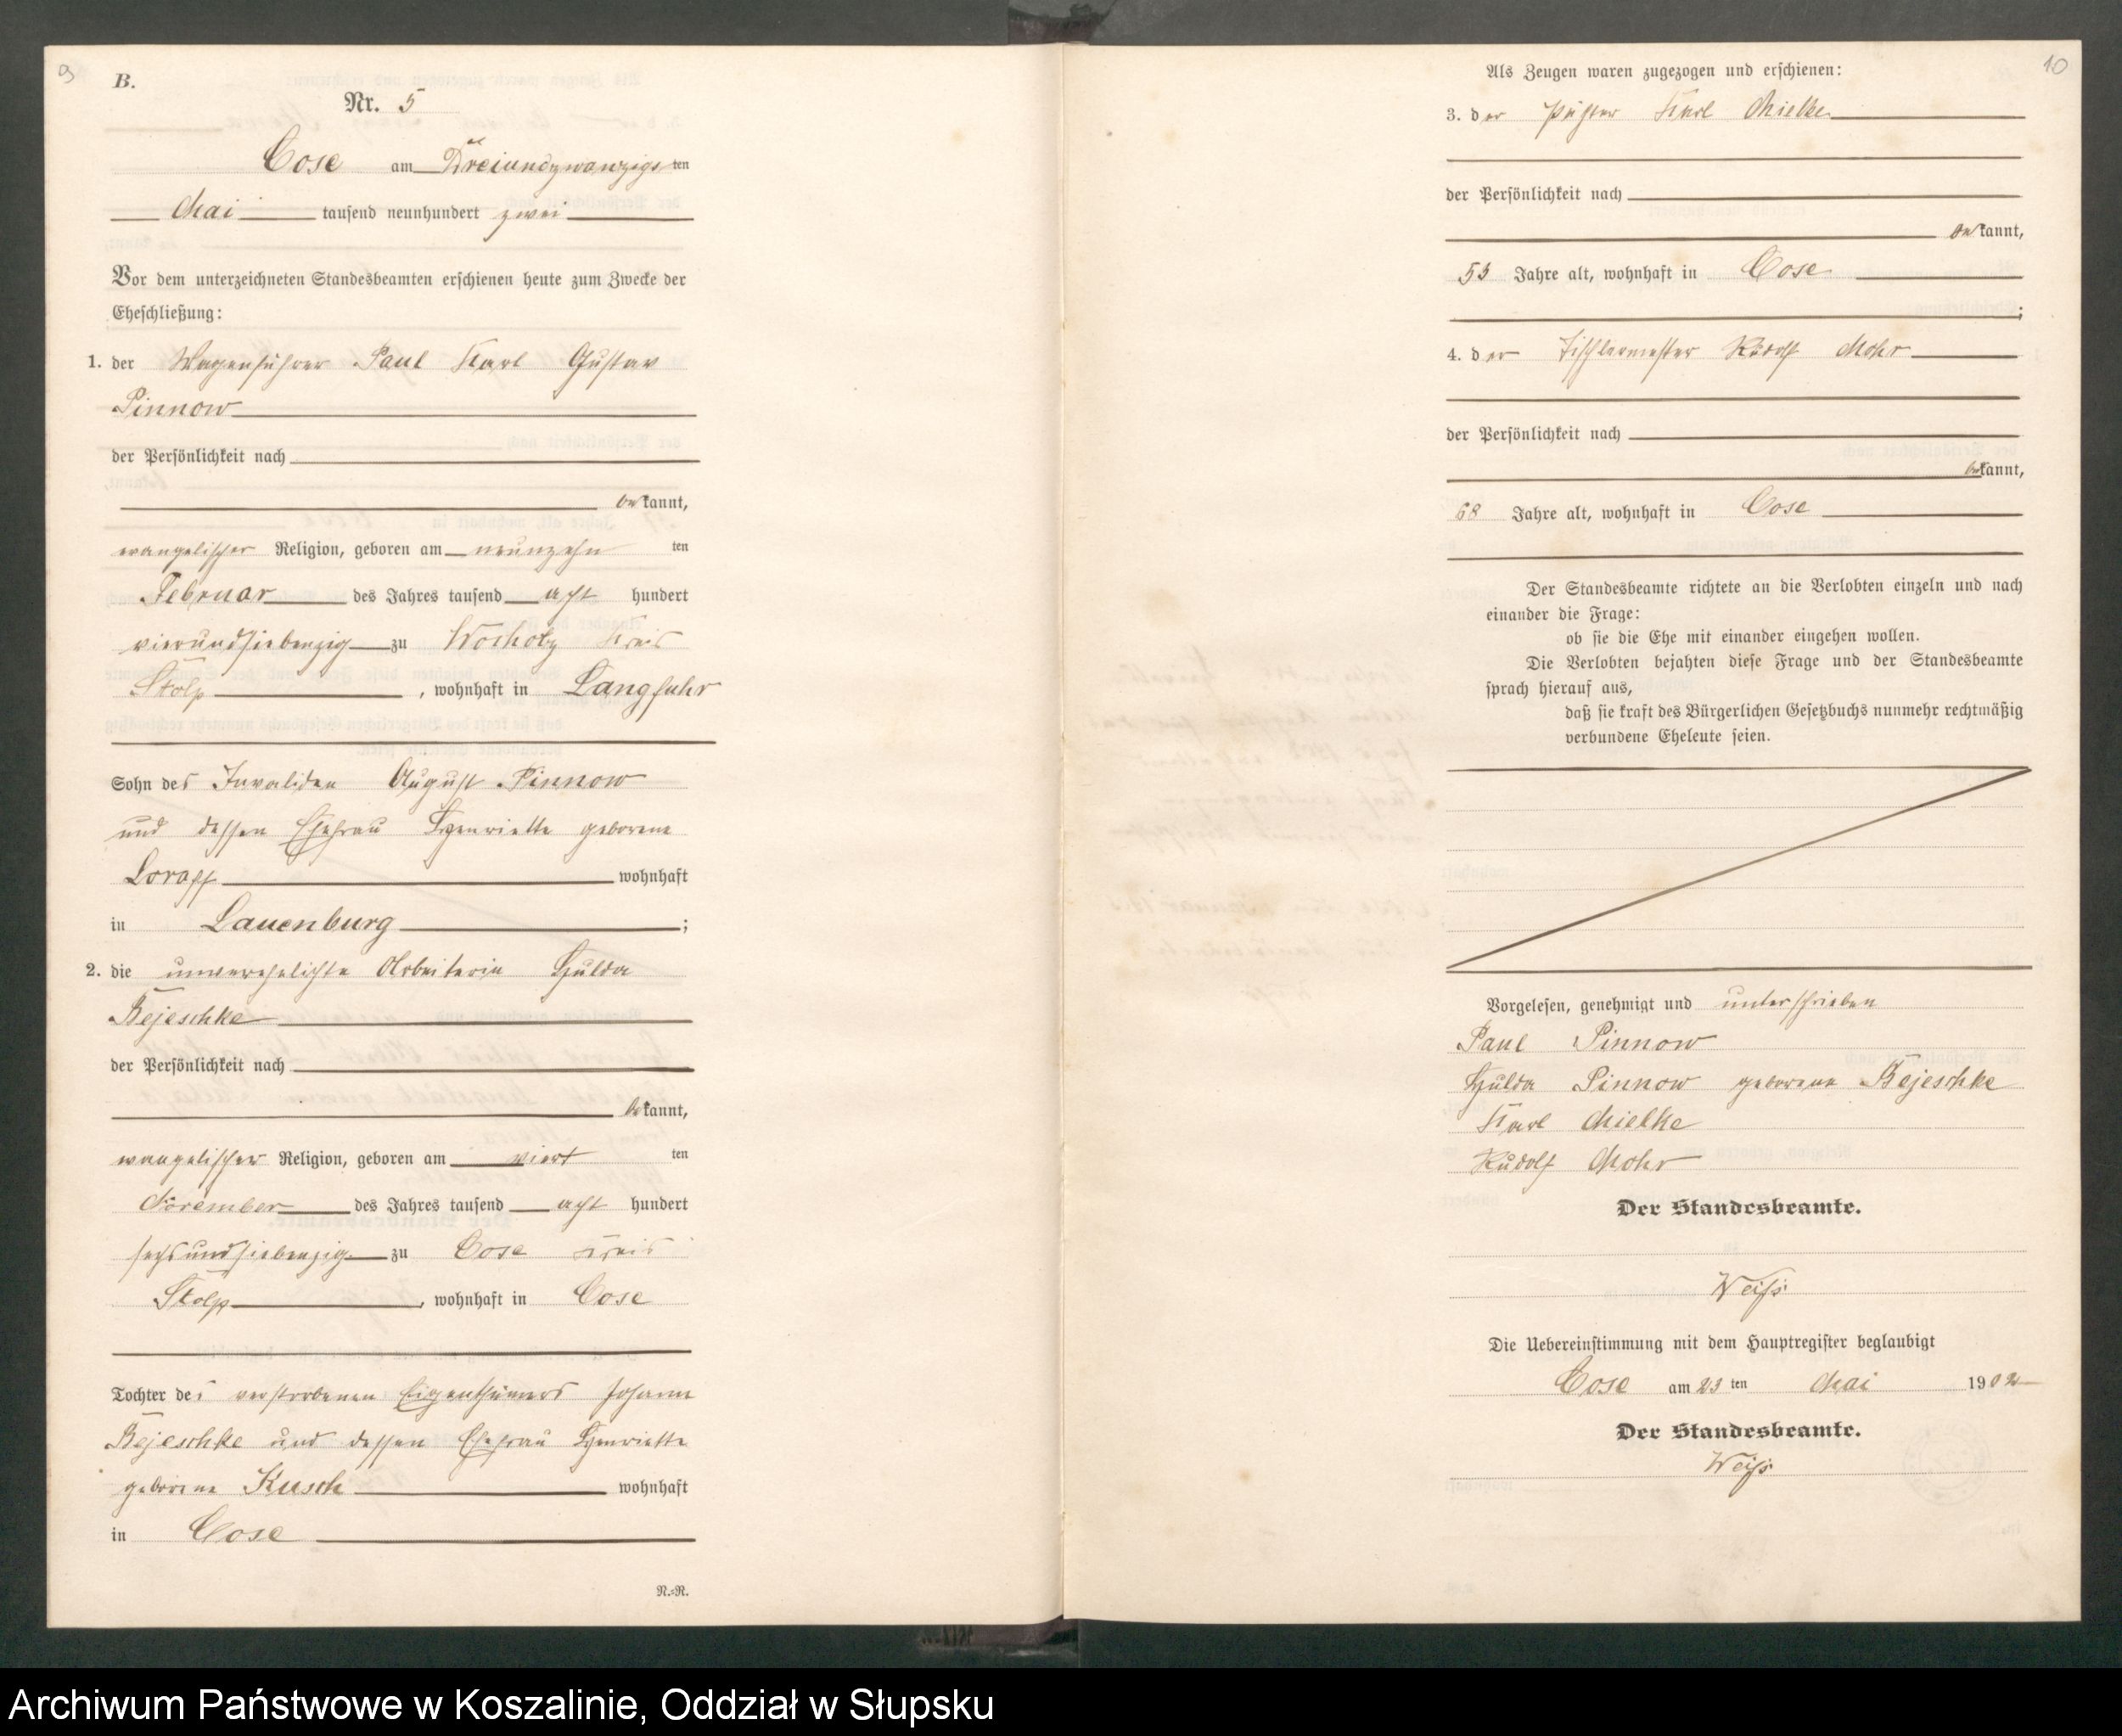 9
B.
Nr. 5
Cose am Dreiundzwanzigsten
Mai tausend neunhundert zwei
Vor dem unterzeichneten Standesbeamten erschienen heute zum Zwecke der
Eheschließung:
1. der Wagenführer Paul Karl Gustav
Pinnow
der Persönlichkeit nach
bekannt,
evangelischer Religion, geboren am neunzehn ten
Februar des Jahres tausend acht hundert
vierundsiebenzig zu Wocholz Kreis
Stolp, wohnhaft in Langfuhr
Sohn des Invaliden August Pinnow
und dessen Ehefrau Henriette geborene
wohnhaft
in Lauenburg;
2. die unverehelichte Arbeiterin Hulda
Bejeschke
der Persönlichkeit nach
bekannt,
evangelischer Religion, geboren am viert ten
November des Jahres tausend acht hundert
sechsundsiebenzig zu Cose Kreis
Stolp, wohnhaft in Cose
Tochter des verstorbenen Eigenthümers Johann
Bejeschke und dessen Ehefrau Henriette
geborene Kusch wohnhaft
in Cose
N.=R.
10
Als Zeugen waren zugezogen und erschienen:
3. der Karl Mielke
der Persönlichkeit nach
bekannt,
53 Jahre alt, wohnhaft in Cose
;
4. der Tischlermeister Rudolf Mohr
der Persönlichkeit nach
bekannt,
68 Jahre alt, wohnhaft in Cose
Der Standesbeamte richtete an die Verlobten einzeln und nach
einander die Frage:
ob sie die Ehe mit einander eingehen wollen.
Die Verlobten bejahten diese Frage und der Standesbeamte
sprach hierauf aus,
daß sie kraft des Bürgerlichen Gesetzbuchs nunmehr rechtmäßig
verbundene Eheleute seien.
Vorgelesen, genehmigt und unterschrieben
Paul Pinnow
Hulda Pinnow geborene Bejeschke
Karl Mielke
Rudolf Mohr
Der Standesbeamte.
Weiß
Die Uebereinstimmung mit dem Hauptregister beglaubigt
Cose am 23 ten Mai 1902
Der Standesbeamte.
Weiß
Archiwum Państwowe w Koszalinie, Oddział w Słupsku